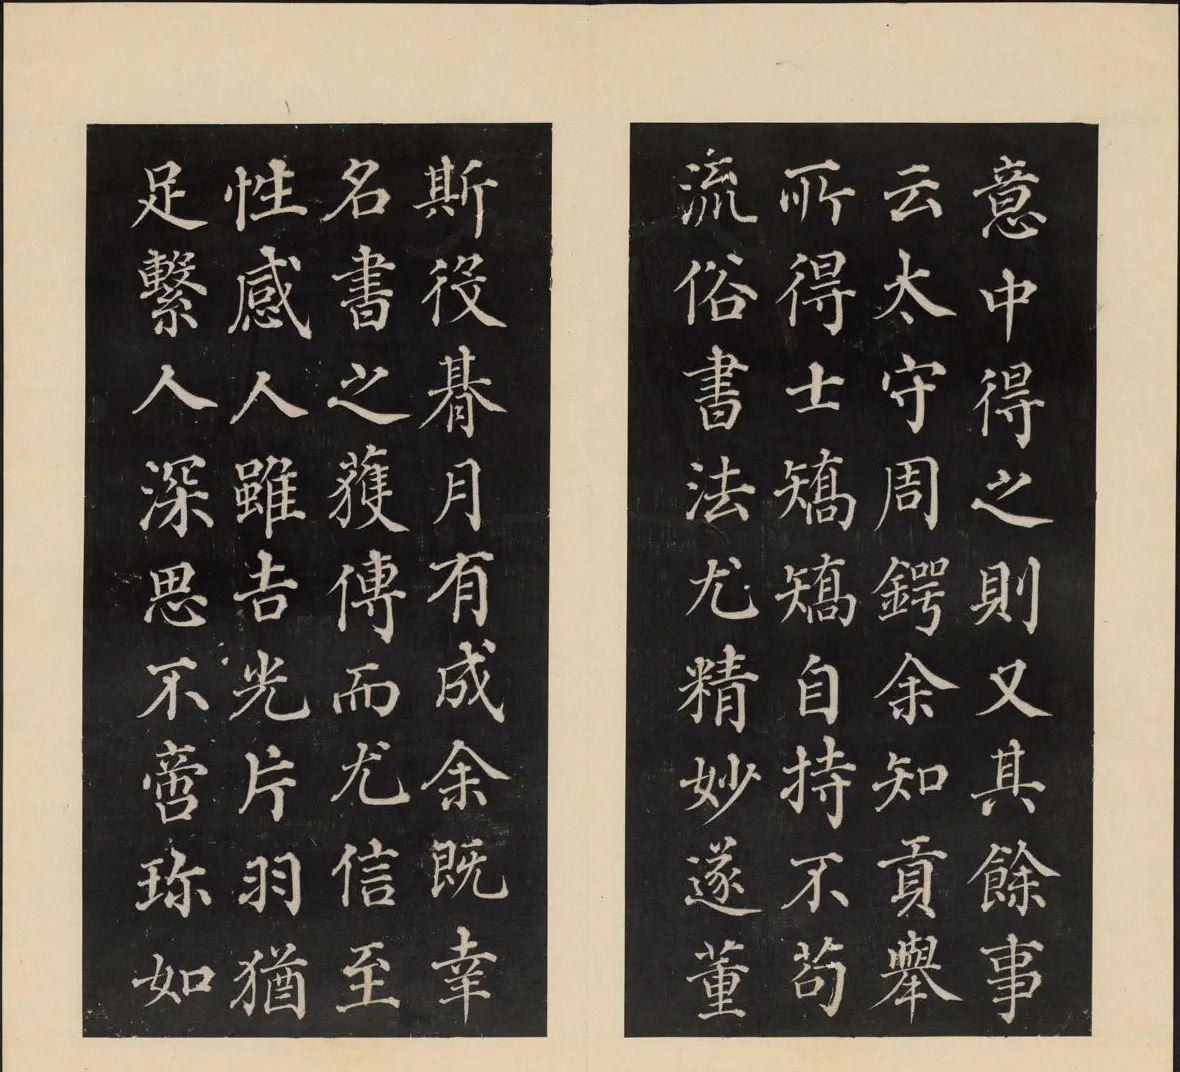 意中得之則又其餘事
云太守周鍔余知貢舉
所得士矯矯自持不苟
流俗書法尤精妙遂董
斯役朞月有成余既幸
名書之獲傳而尤信至
性感人雖吉光片羽猶
足繫人深思不啻珎如